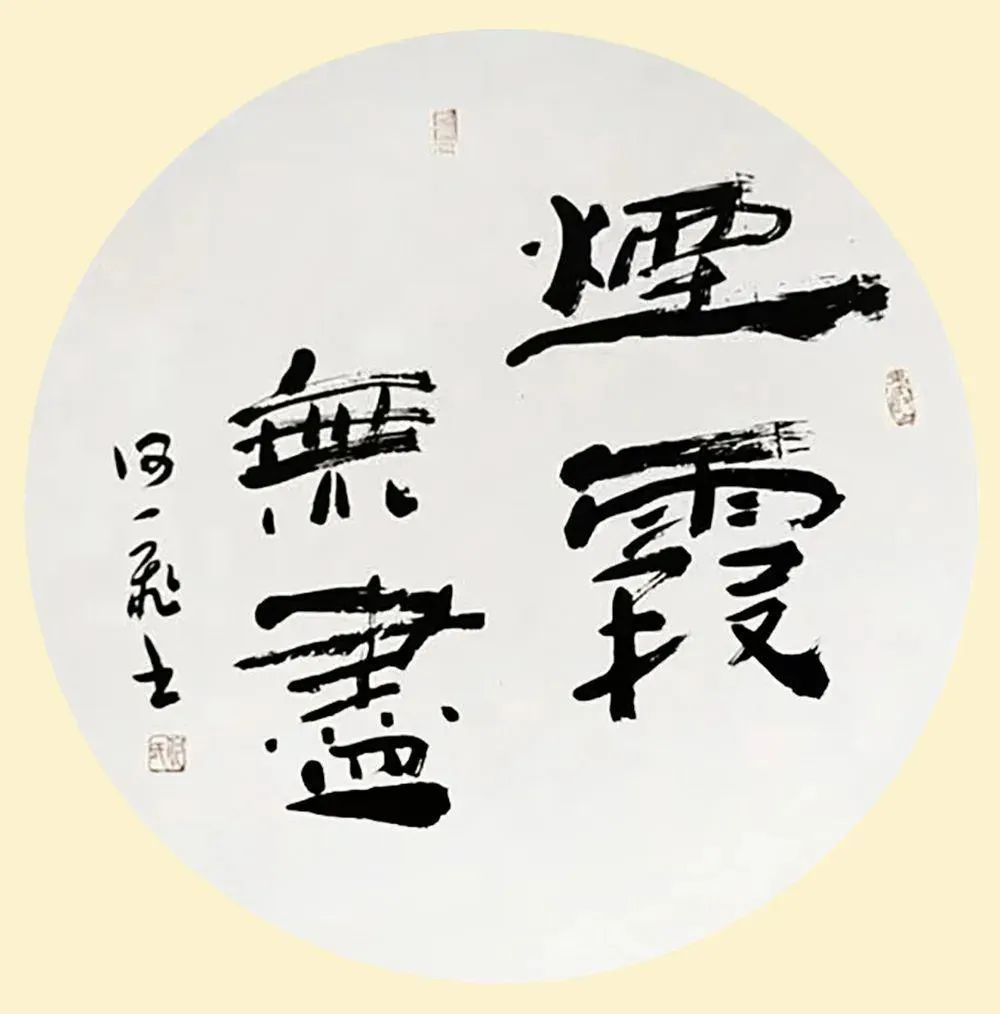 煙霞
無盡
何一飛书